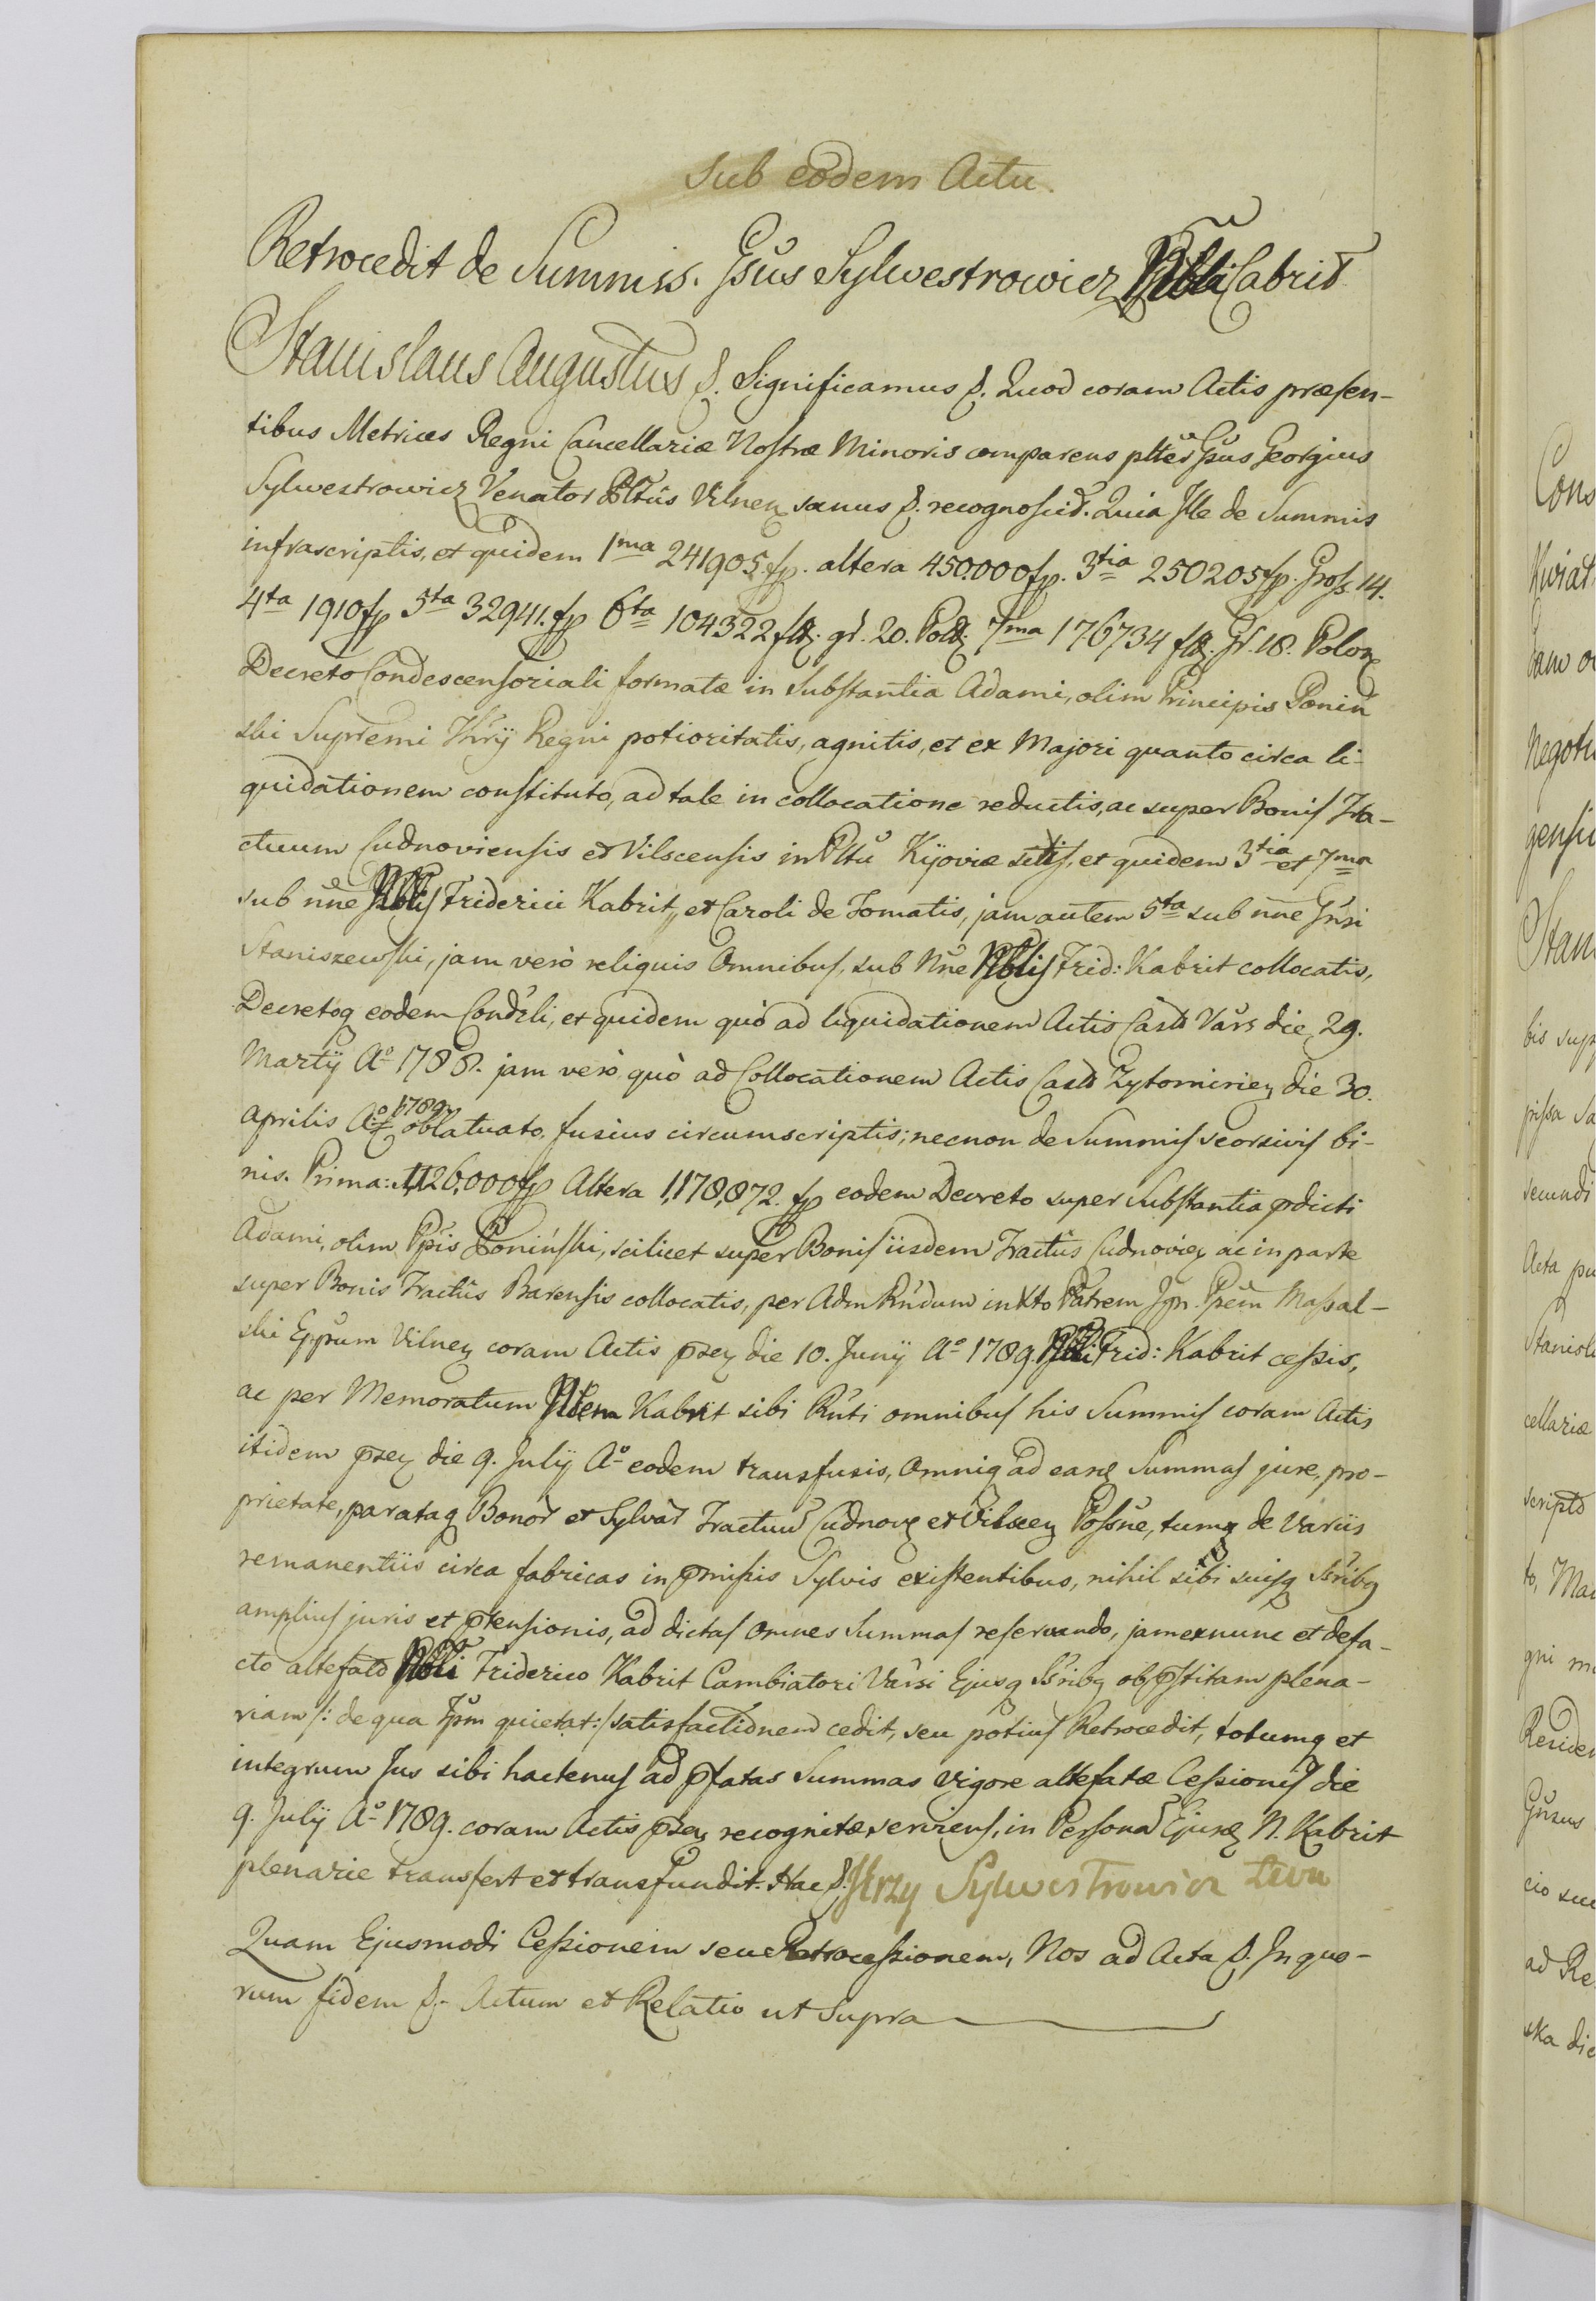 Sub eodem Actu
Retrocedit de Summis. Gsus Sylwestrowicz Nbli Cabrit
Stanislaus Augustus &. Significamus &. Quod coram Actis præsen-
tibus Metrices Regni Cancellariæ Nostræ Minoris comparens plter Gsus Georgius
Sylwestrowicz Venator Pltus Vilnen sanus &. recognoscit. Quia Ille de Summis
infrascriptis, et quidem 1ma 241905 fp. altera 450.000 fp. 3tia 250205 fp. Gross. 14.
4ta 1910 fp 5ta 32941. fp 6ta 104322 flp. gr. 20. Pol. 7ma 176734 fl. Gr. 18. Polon
Decreto Condescensoriali formatæ in Substantia Adami, olim Principis Poniń
ski Supremi Thrij Regni potioritatis, agnitis, et ex Majori quanto circa li-
quidationem constituto, ad tale in collocatione reductis, ac super Bonis Tra-
ctuum Cudnoviensis et Vilscensis in Pltu Kijoviæ sitis, et quidem 3tia et 7ma
sub nne Nblis Friderici Kabrit, et Caroli de Tomatis, jam autem 5ta sub nne Gnsi
Staniszewski, jam verò reliquis Omnibus, sub Nne Nblis Frid: Kabrit collocatis,
Decretoq eodem Condsli, et quidem quò ad liquidationem Actis Casts Vars die 29.
Martij Ao 1788. jam verò quò ad Collocationem Actis Casts Zytomirien die 30.
Aprilis Ao 1789. oblatuato, fusius circumscriptis; necnon de Summis seorsivis bi-
nis. Prima: 1,126,000 fp Altera 1,178,872. fp eodem Decreto super Substantia pdicti
Adami, olim Ppis Poniński, scilicet super Bonis iisdem Tractus Cudnovien ac in parte
super Bonis Tractus Barensis collocatis, per Adm Rndum in Xto Patrem Jgn. Ppem Massal-
ski Eppum Vilnen coram Actis psen die 10. Junij Ao 1789. Nbli Frid: Kabrit cessis,
ac per Memoratum Nblem Kabrit sibi Rnti omnibus his Summis coram Actis
itidem psen die 9. Julij Ao eodem transfusis, Omniq ad easd Summas jure, pro-
prietate, parataq Bonor et Sylvar Tractuum Cudnov et Vilscen Possne, tumq de Variis
remanentiis circa fabricas in pmissis Sylvis existentibus, nihil sibi suisq Ssribq
amplius juris et ptensionis, ad dictas Omnes Summas reservando, jam ex nunc et defa-
cto altefato Nbli Friderico Kabrit Cambiatori Varsi Ejusq Ssribq ob pstitam plena-
riam /: de qua Ipm quietat :/ satisfactionem cedit, seu potius Retrocedit, totumq et
integrum Jus sibi hactenus ad pfatas Summas vigore altefatæ Cessionis die
9. Julij Ao 1789. coram Actis psen recognitæ serviens, in Personam Ejusd N. Kabrit
plenarie transfert et transfundit. Hac &. Jerzy Sylwestrowicz Łwu
Quam Ejusmodi Cessionem seu Retrocessionem, Nos ad Acta &. In quo-
rum fidem &.- Actum et Relatio ut Supra